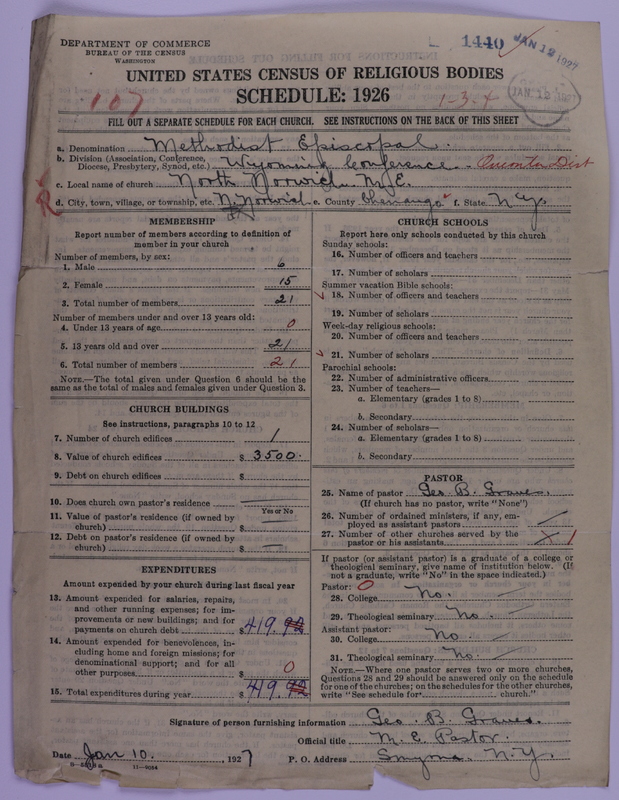 DEPARTMENT OF COMMERCE
BUREAU OF THE CENSUS
WASHINGTON
1440
JAN 12 1927
JAN 12 1927
UNITED STATES CENSUS OF RELIGIOUS BODIES
SCHEDULE: 1926
107
1-3-4
FILL OUT A SEPARATE SCHEDULE FOR EACH CHURCH. SEE INSTRUCTIONS ON THE BACK OF THIS SHEET
a. Denomination Methodist Episcopal.
b. Division (Association, Conference, Diocese, Presbytery, Synod, etc.) Wyoming Conference - Oneonta Dist
c. Local name of church North Norwich M.E.
d. City, town, village, or township, etc. N. Norwich e. County Chenango f. State N.Y.
MEMBERSHIP
Report number of members according to definition of
member in your church
Number of members, by sex:
1. Male 6
2. Female 15
3. Total number of members 21
Number of members under and over 13 years old:
4. Under 13 years of age 0
5. 13 years old and over 21
6. Total number of members 21
NOTE.—The total given under Question 6 should be the
same as the total of males and females given under Question 3.
CHURCH BUILDINGS
See instructions, paragraphs 10 to 12
7. Number of church edifices 1
8. Value of church edifices $ 3500.
9. Debt on church edifices $
10. Does church own pastor's residence
Yes or No
11. Value of pastor's residence (if owned by
church) $
12. Debt on pastor's residence (if owned by
church) $ —
EXPENDITURES
Amount expended by your church during last fiscal year
13. Amount expended for salaries, repairs,
and other running expenses; for im-
provements or new buildings; and for
payments on church debt $ 419.92
14. Amount expended for benevolences, in-
cluding home and foreign missions; for
denominational support; and for all
other purposes $ 0
15. Total expenditures during year $ 419.92
CHURCH SCHOOLS
Report here only schools conducted by this church
Sunday schools:
16. Number of officers and teachers
17. Number of scholars
Summer vacation Bible schools:
18. Number of officers and teachers
19. Number of scholars
Week-day religious schools:
20. Number of officers and teachers
21. Number of scholars
Parochial schools:
22. Number of administrative officers
23. Number of teachers—
a. Elementary (grades 1 to 8)
b. Secondary
24. Number of scholars—
a. Elementary (grades 1 to 8)
b. Secondary
PASTOR
25. Name of pastor Geo. B. Graves.
(If church has no pastor, write "None")
26. Number of ordained ministers, if any, em-
ployed as assistant pastors
27. Number of other churches served by the
pastor or his assistants 1
If pastor (or assistant pastor) is a graduate of a college or
theological seminary, give name of institution below. (If
not a graduate, write "No" in the space indicated.)
Pastor: 0
28. College No.
29. Theological seminary No.
Assistant pastor:
30. College No.
31. Theological seminary No.
NOTE.—Where one pastor serves two or more churches,
Questions 28 and 29 should be answered only on the schedule
for one of the churches; on the schedules for the other churches,
write "See schedule for church."
Signature of person furnishing information Geo. B. Graves.
Official title M. E. Pastor.
Date Jan 10., 1927 P. O. Address Smyrna, N.Y.
11—9084